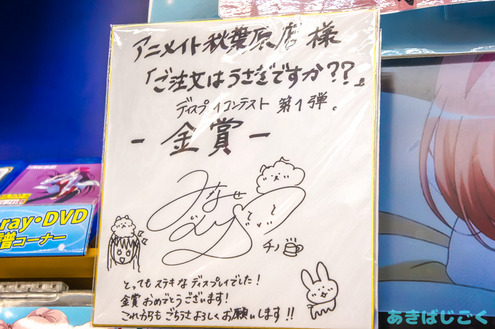 アニメイト秋葉原店様
「ご注文はうさぎですか??」
ディスプレイコンテスト 第1弾。
-金賞-
みなせ
チノ
とってもステキなディスプレイでした!
金賞おめでとうございます!
これからもごちうさよろしくお願いします!!
ray・DVD
コーナー
あきばじごく